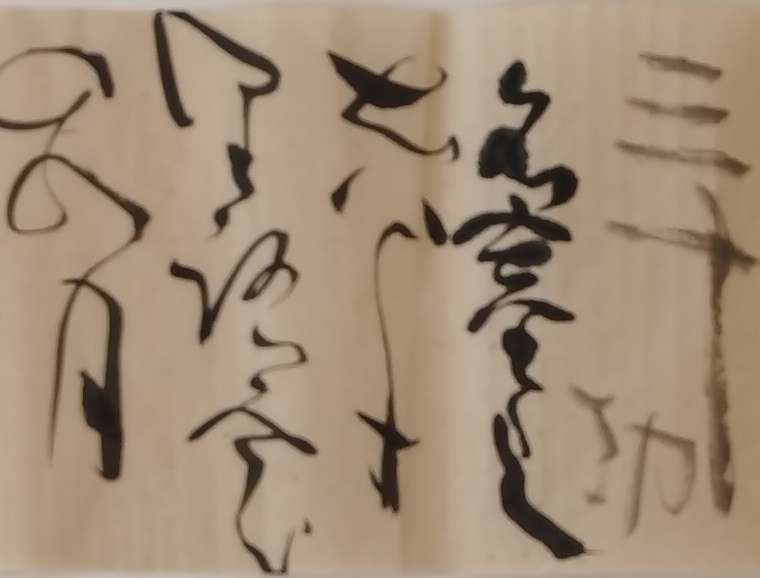 三十功
名塵與
土八千
里路雲
和月